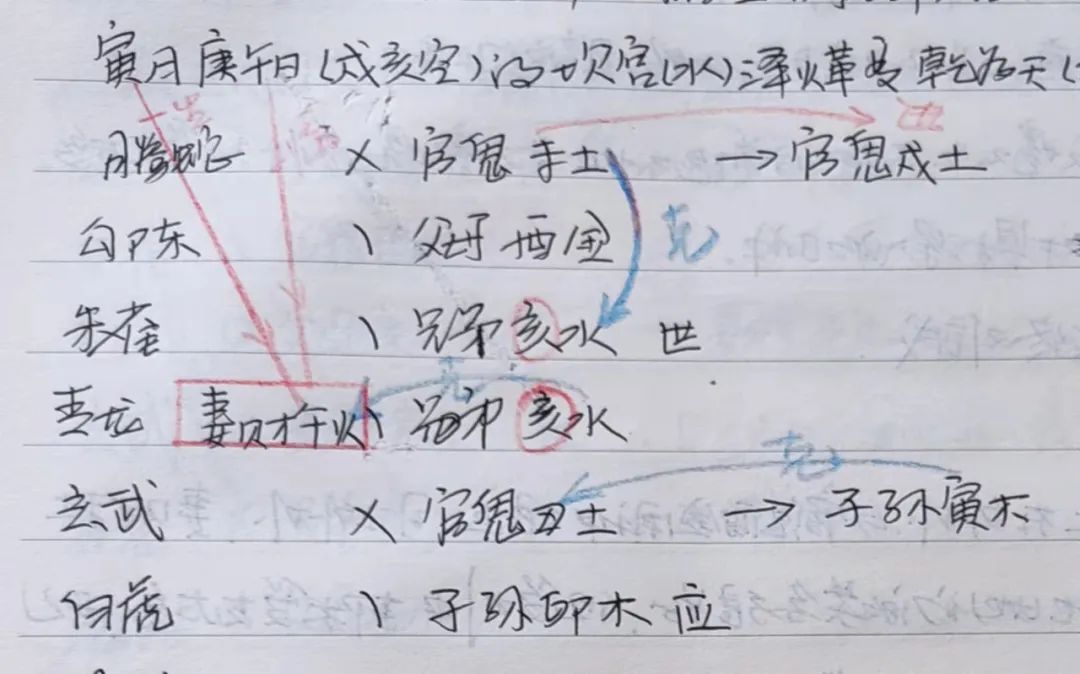 寅月庚午日(戌亥空)得坎宫(水)泽火革变乾为天(
螣蛇 X 官鬼未土 → 官鬼戌土
勾陈 \ 父母酉金 克
朱雀 \ 兄弟亥水 世
克
青龙 妻财午火 \ 兄弟亥水
克
玄武 X 官鬼丑土 → 子孙寅木
白虎 \ 子孙卯木 应